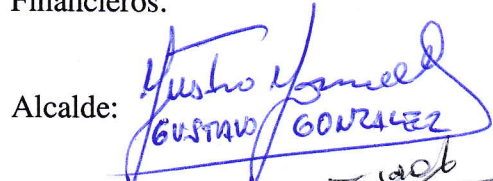 Financieros:
Alcalde:
GUSTAVO GONZALEZ